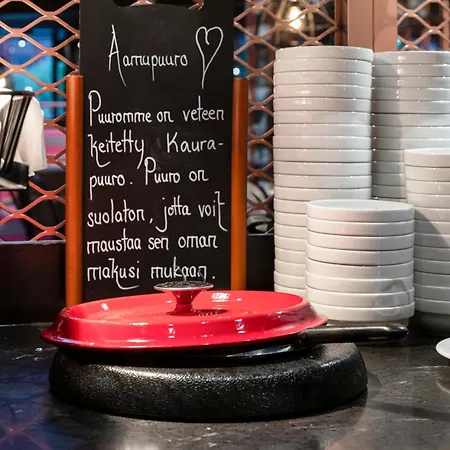 Aamupuuro ♡
Puuromme on veteen
keitetty Kaura-
puuro. Puuro on
suolaton, jotta voit
maustaa sen oman
makusi mukaan.